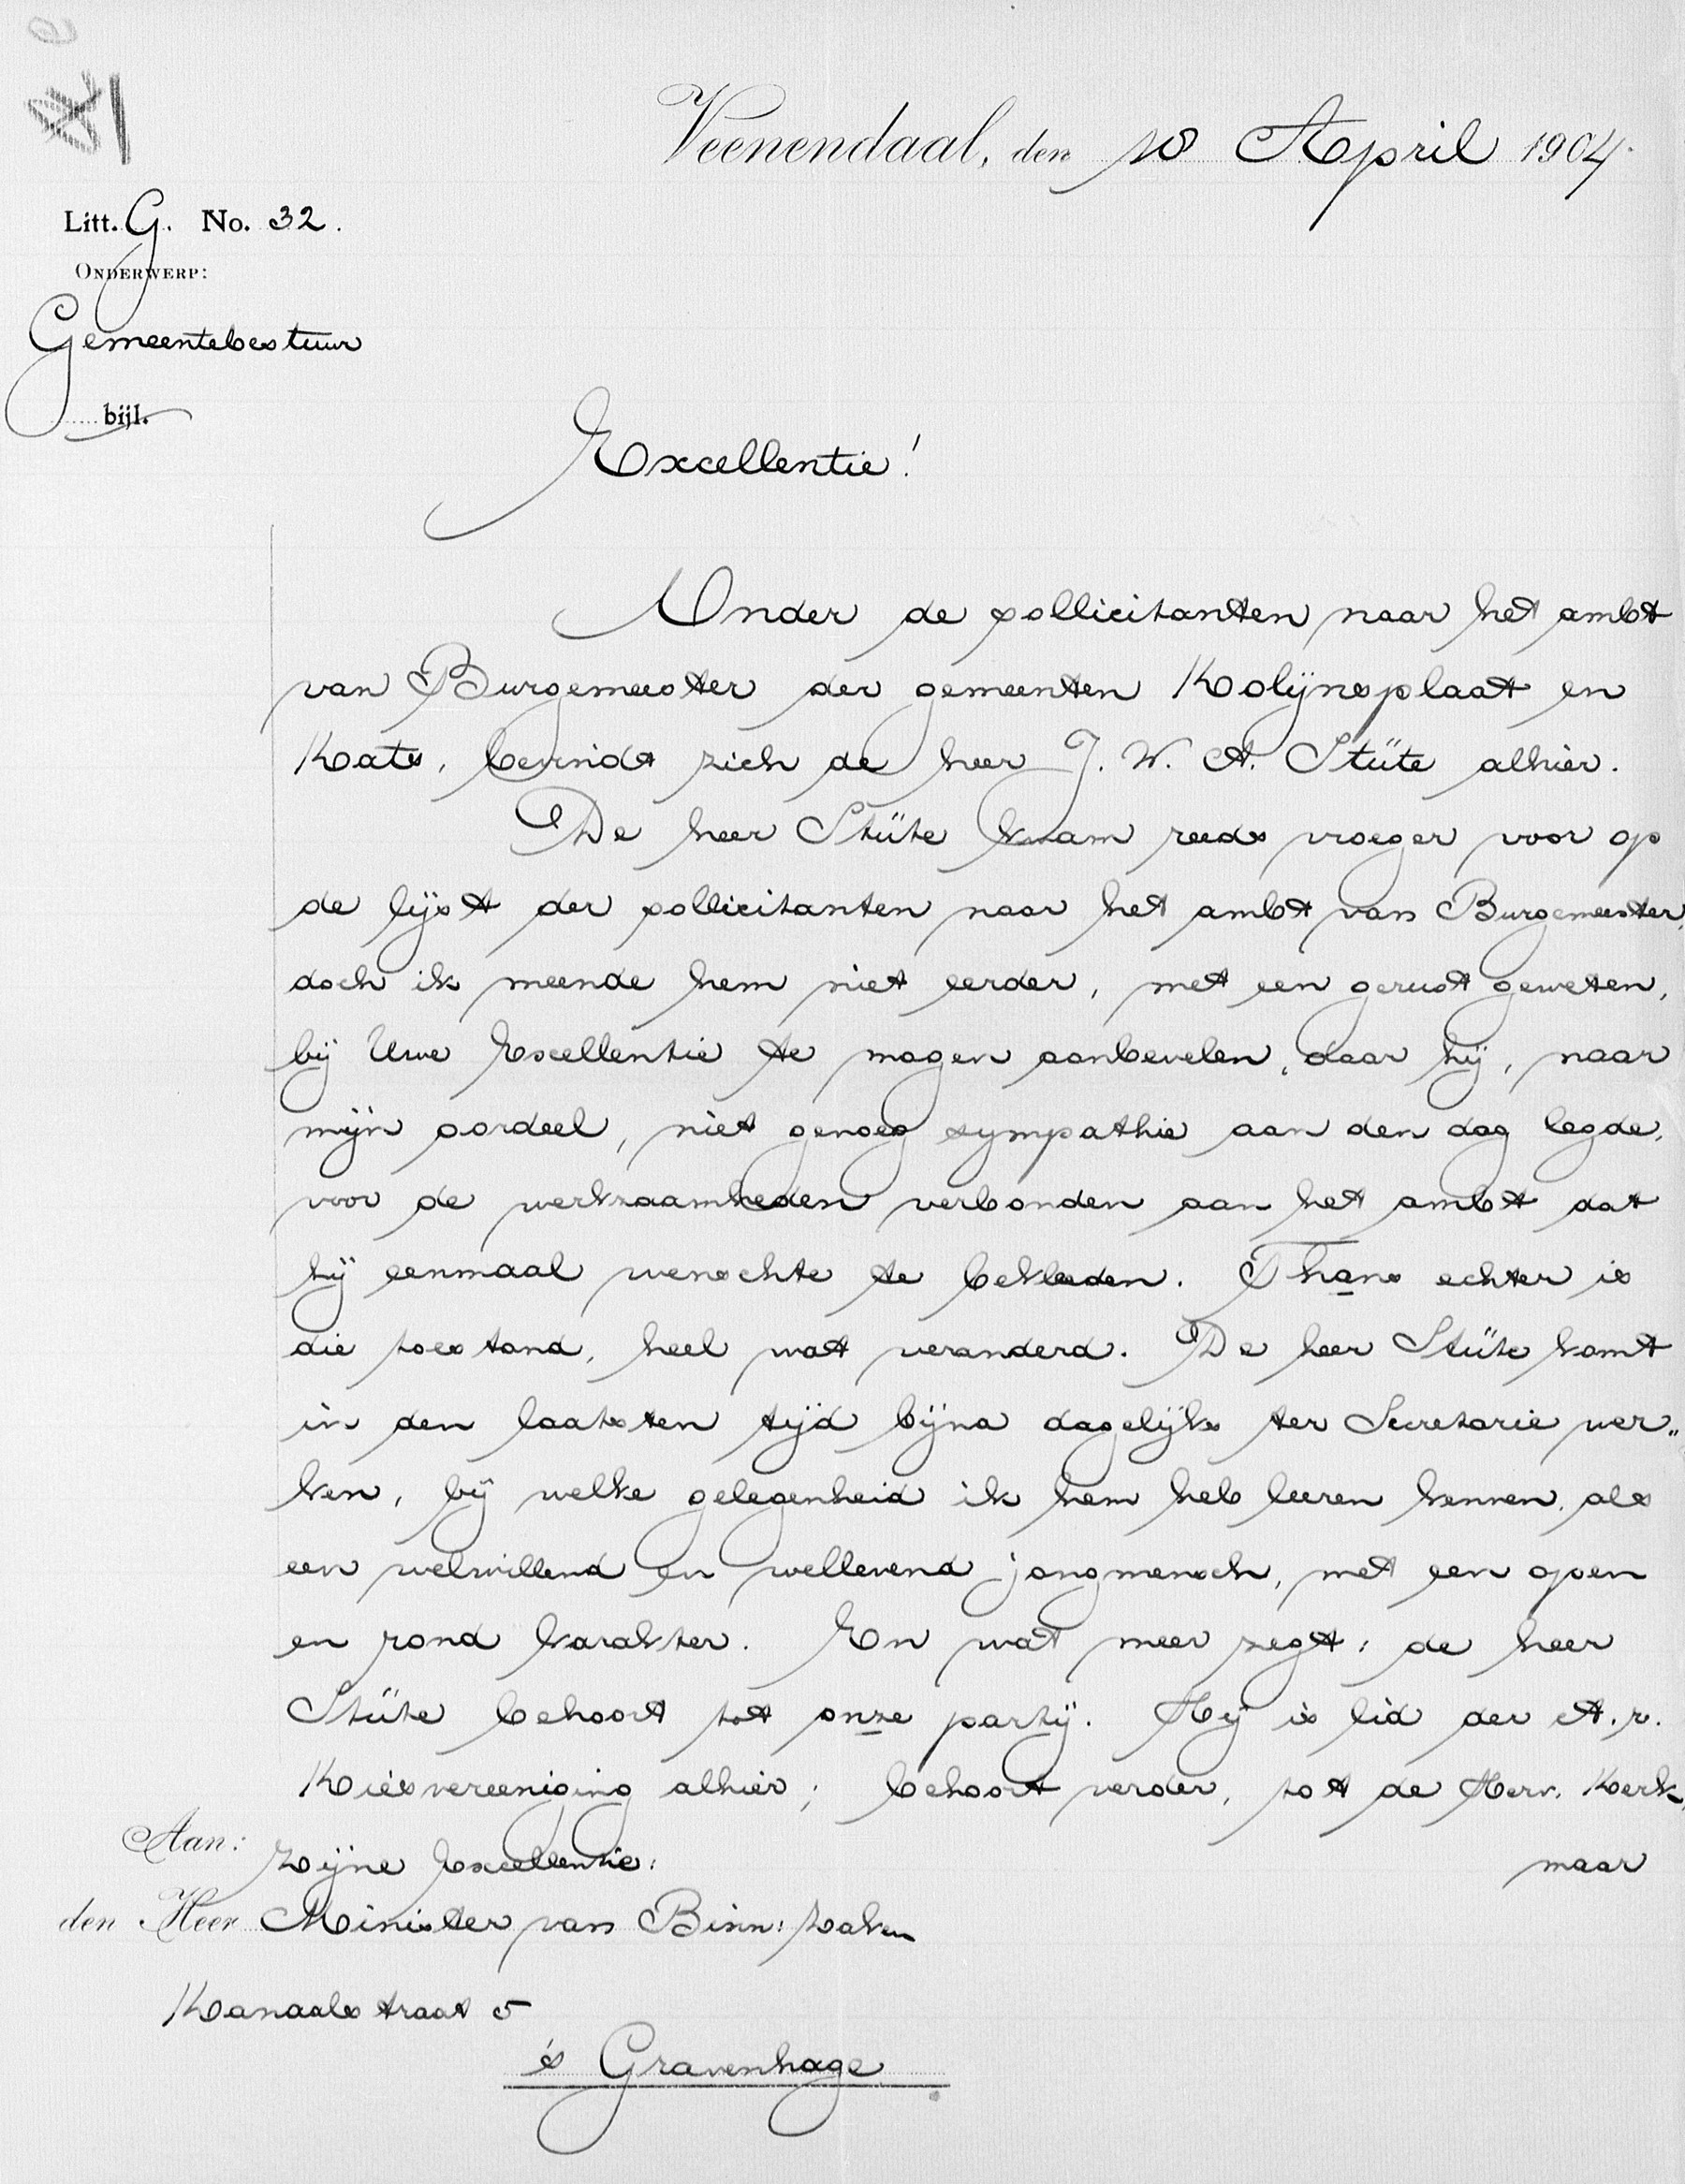 Veenendaal, den 18 April 1904.
Litt. G. No. 32.
ONDERWERP:
Gemeentebestuur
bijl.
Excellentie!
Onder de sollicitanten naar het ambt
van Burgemeester der gemeenten Kolijnsplaat en
Kats, bevindt zich de heer J. W. A. Stüte alhier.
De heer Stüte kwam reeds vroeger voor op
de lijst der sollicitanten naar het ambt van Burgemeester,
doch ik meende hem niet eerder, met een gerust geweten,
bij Uwe Excellentie te mogen aanbevelen, daar hij, naar
mijn oordeel, niet genoeg sympathie aan den dag legde,
voor de werkzaamheden verbonden aan het ambt dat
hij eenmaal wenschte te bekleeden. Thans echter is
die toestand, heel wat veranderd. De heer Stüte komt
in den laatsten tijd bijna dagelijks ter Secretarie wer„
ken, bij welke gelegenheid ik hem heb leeren kennen, als
een welwillend en wellevend jongmensch, met een open
en rond karakter. En wat meer zegt: de heer
Stüte behoort tot onze partij. Hij is lid der A. r.
Kiesvereeniging alhier; behoort verder, tot de Herv. Kerk,
maar
Aan:
Zijne Excellentie:
den Heer Minister van Binn: Zaken
Kanaalstraat 5
's Gravenhage